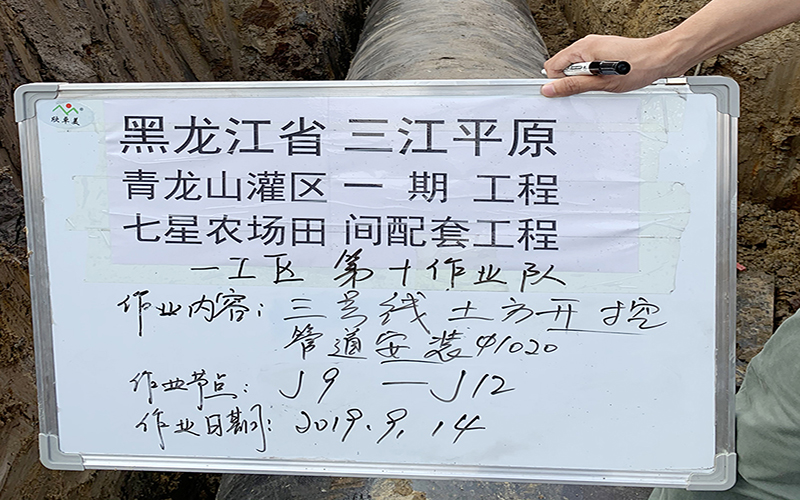 欣卓美
黑龙江省 三江平原
青龙山灌区 一 期 工程
七星农场田 间配套工程
一工区 第十作业队
作业内容: 三号线 土方开挖
管道安装 φ1020
作业节点: J9 — J12
作业日期: 2019.9.14